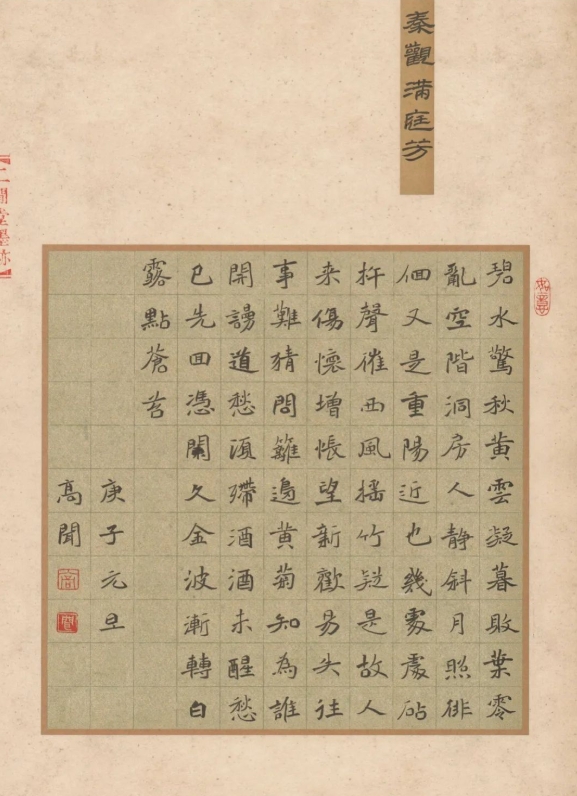 秦觀滿庭芳
碧水驚秋黄雲凝暮敗葉零
亂空階洞房人靜斜月照徘
佪又是重陽近也幾處處砧
杵聲催西風摇竹疑是故人
来傷懷增悵望新歡易失往
事難猜問籬邊黄菊知為誰
開謾道愁須殢酒酒未醒愁
已先回憑闌久金波漸轉白
露點蒼苔
庚子元旦
高聞